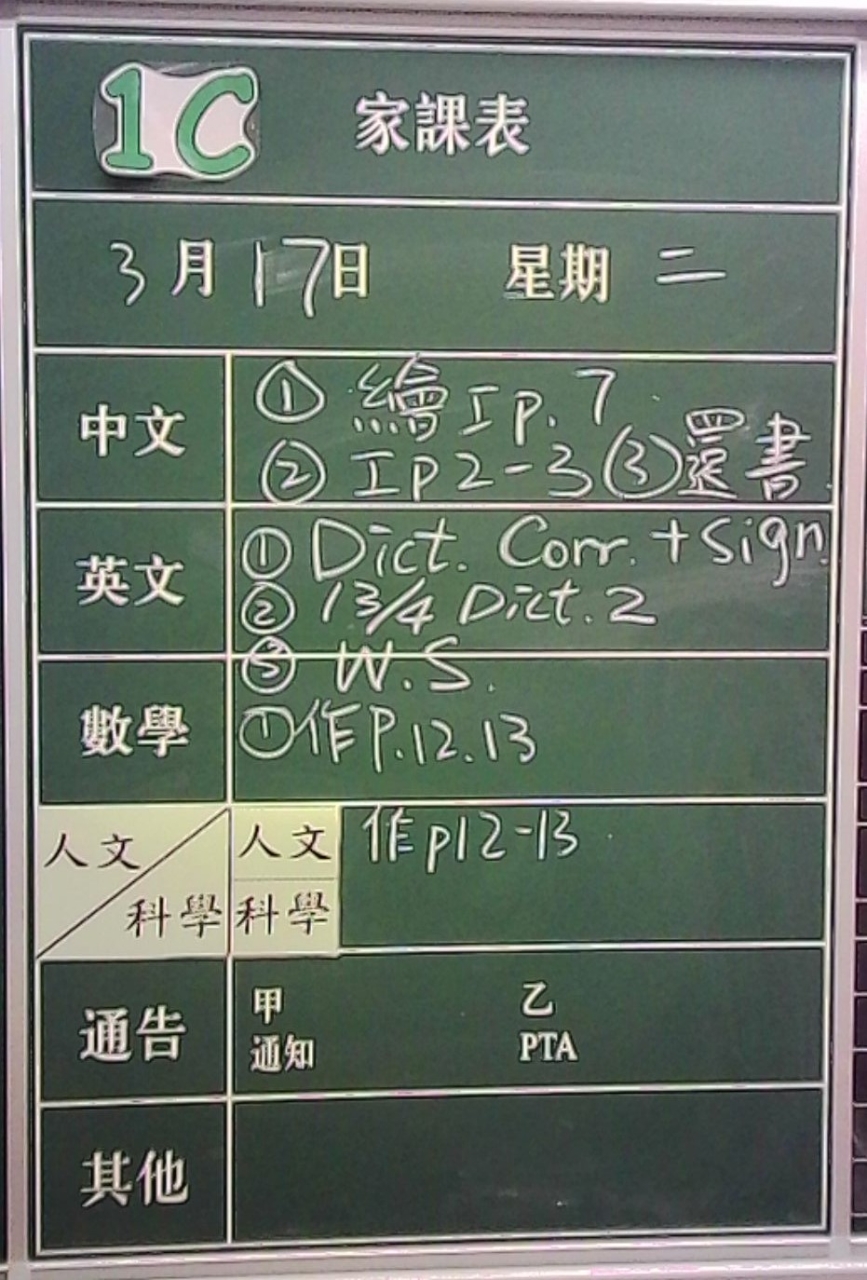 1C 家課表
3月17日 星期二
中文 ① 繪工p.7
② 工p2-3 ③還書
英文 ① Dict. Corr. + sign.
② 13/4 Dict. 2
③ W.S.
數學 ①作P.12.13
人文 人文 作p12-13
科學 科學
通告 甲 乙
通知 PTA
其他